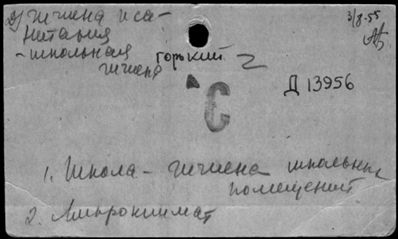 3/8-55
гигиена и са-
нитария
- школьная
гигиена
горький
Д 13956
С
1. Школа - гигиена школьных
помещений
2. Микроклимат